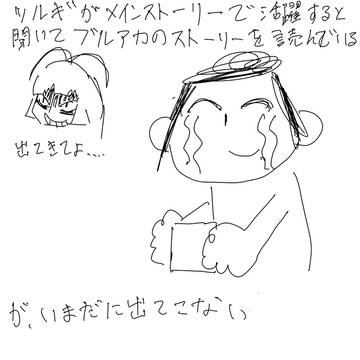 ツルギがメインストーリーで活躍すると
聞いてブルアカのストーリーを読んでいる
出てきてよ....
が、いまだに出てこない